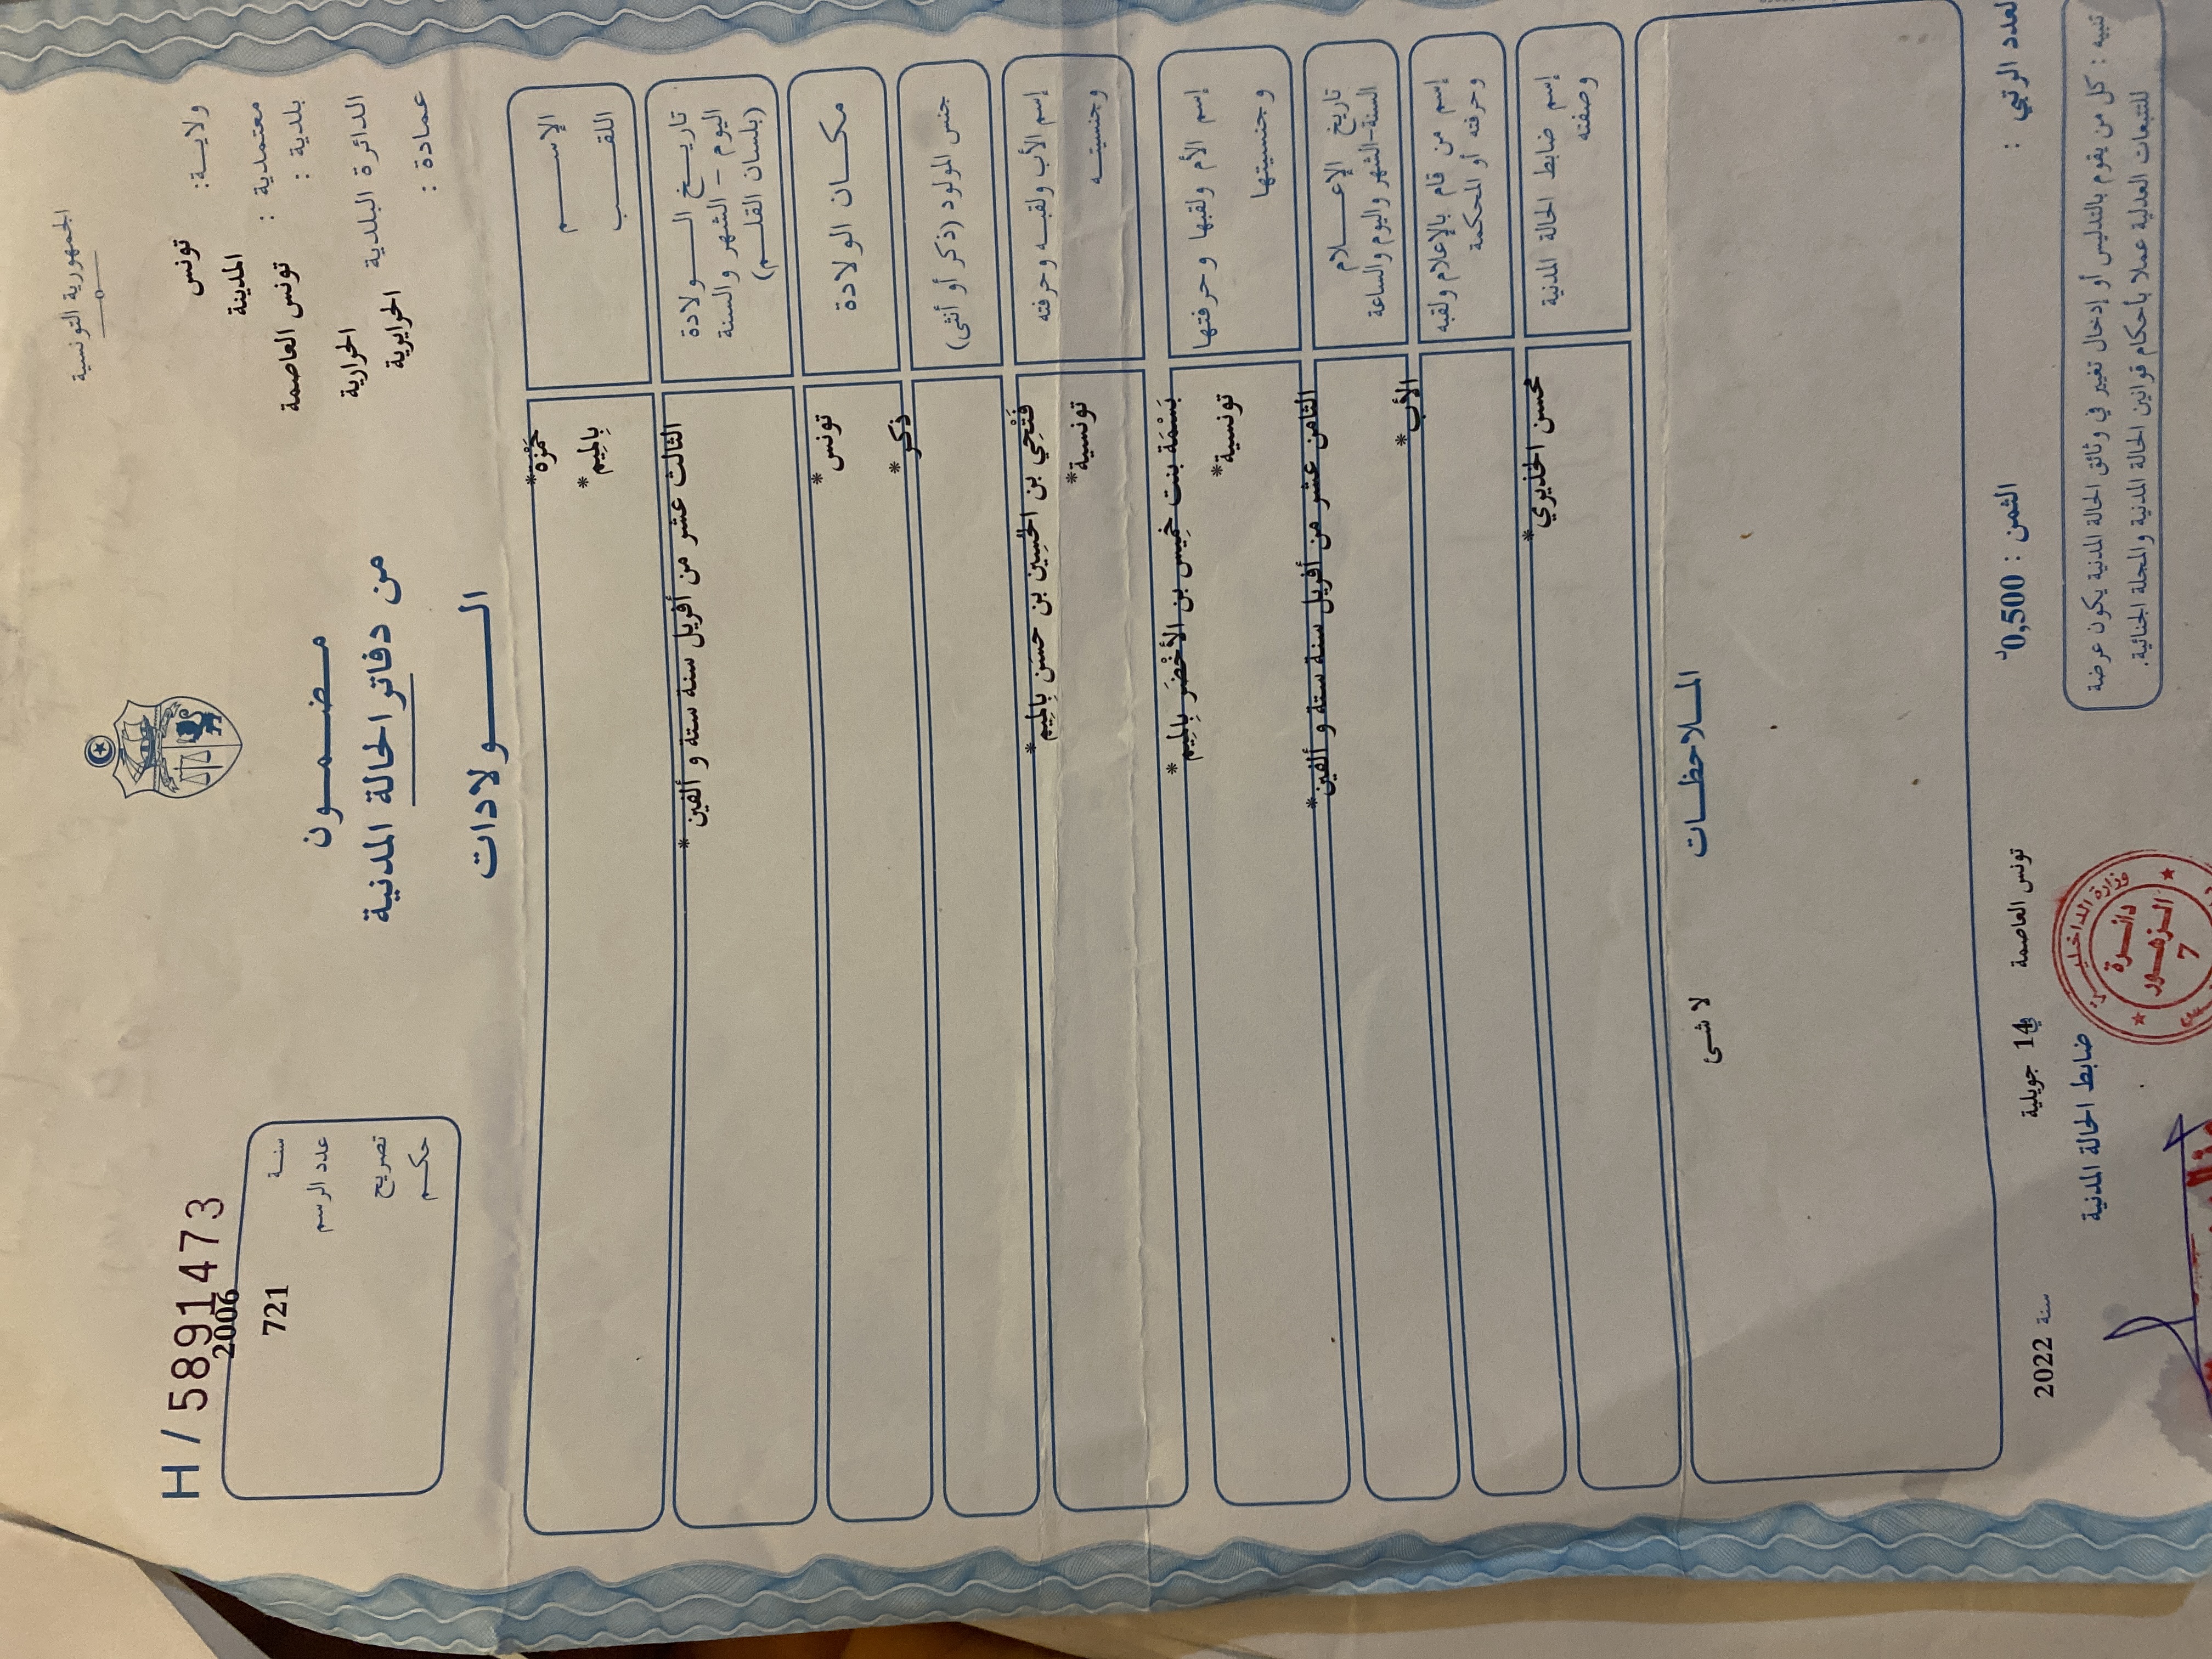 الجمهورية التونسية
ولايــة: تونس
معتمدية : المدينة
بلدية : تونس العاصمة
الدائرة البلدية الحرارية
عمادة : الحرايرية
مـضـمـون
من دفاتر الحالة المدنية
الـولادات
H / 5891473
سنـة 2006
عدد الرسم 721
تصريح
حكـم
الإسـم حَمْزَة*
اللقـب بِالمِيم*
تاريـخ الـولادة
اليوم - الشهر والسنة
(بلسان القلـم)
الثالث عشر من أفريل سنة ستة و ألفين*
مكـان الولادة تونس*
جنس المولود (ذكر أو أنثى) ذكر*
إسم الأب ولقبـه وحرفته فَتْحِي بن الحْسِين بن حسَن بِالمِيم*
وجنسيتـه تونسية*
إسم الأم ولقبها وحرفتها بَسْمَة بنت خمِيس بن الأخْضَر بِالمِيم*
وجنسيتها تونسية*
تاريخ الإعـلام
السنة-الشهر واليوم والساعة
الثامن عشر من أفريل سنة ستة و ألفين*
إسم من قام بالإعلام ولقبه
وحرفته أو المحكمة
الأب*
إسم ضابط الحالة المدنية
وصفته
محسن الخذيري*
المـلاحظـات
لا شئ
العدد الرتبي :
الثمن : 0,500د
تونس العاصمة في 14 جويلية سنة 2022
تنبيه : كل من يقوم بالتدليس أو إدخال تغيير في وثائق الحالة المدنية يكون عرضة
للتبعات العدلية عملا بأحكام قوانين الحالة المدنية والمجلة الجنائية.
ضابط الحالة المدنية
وزارة الداخليـة
دائـرة
الـزهـور
7